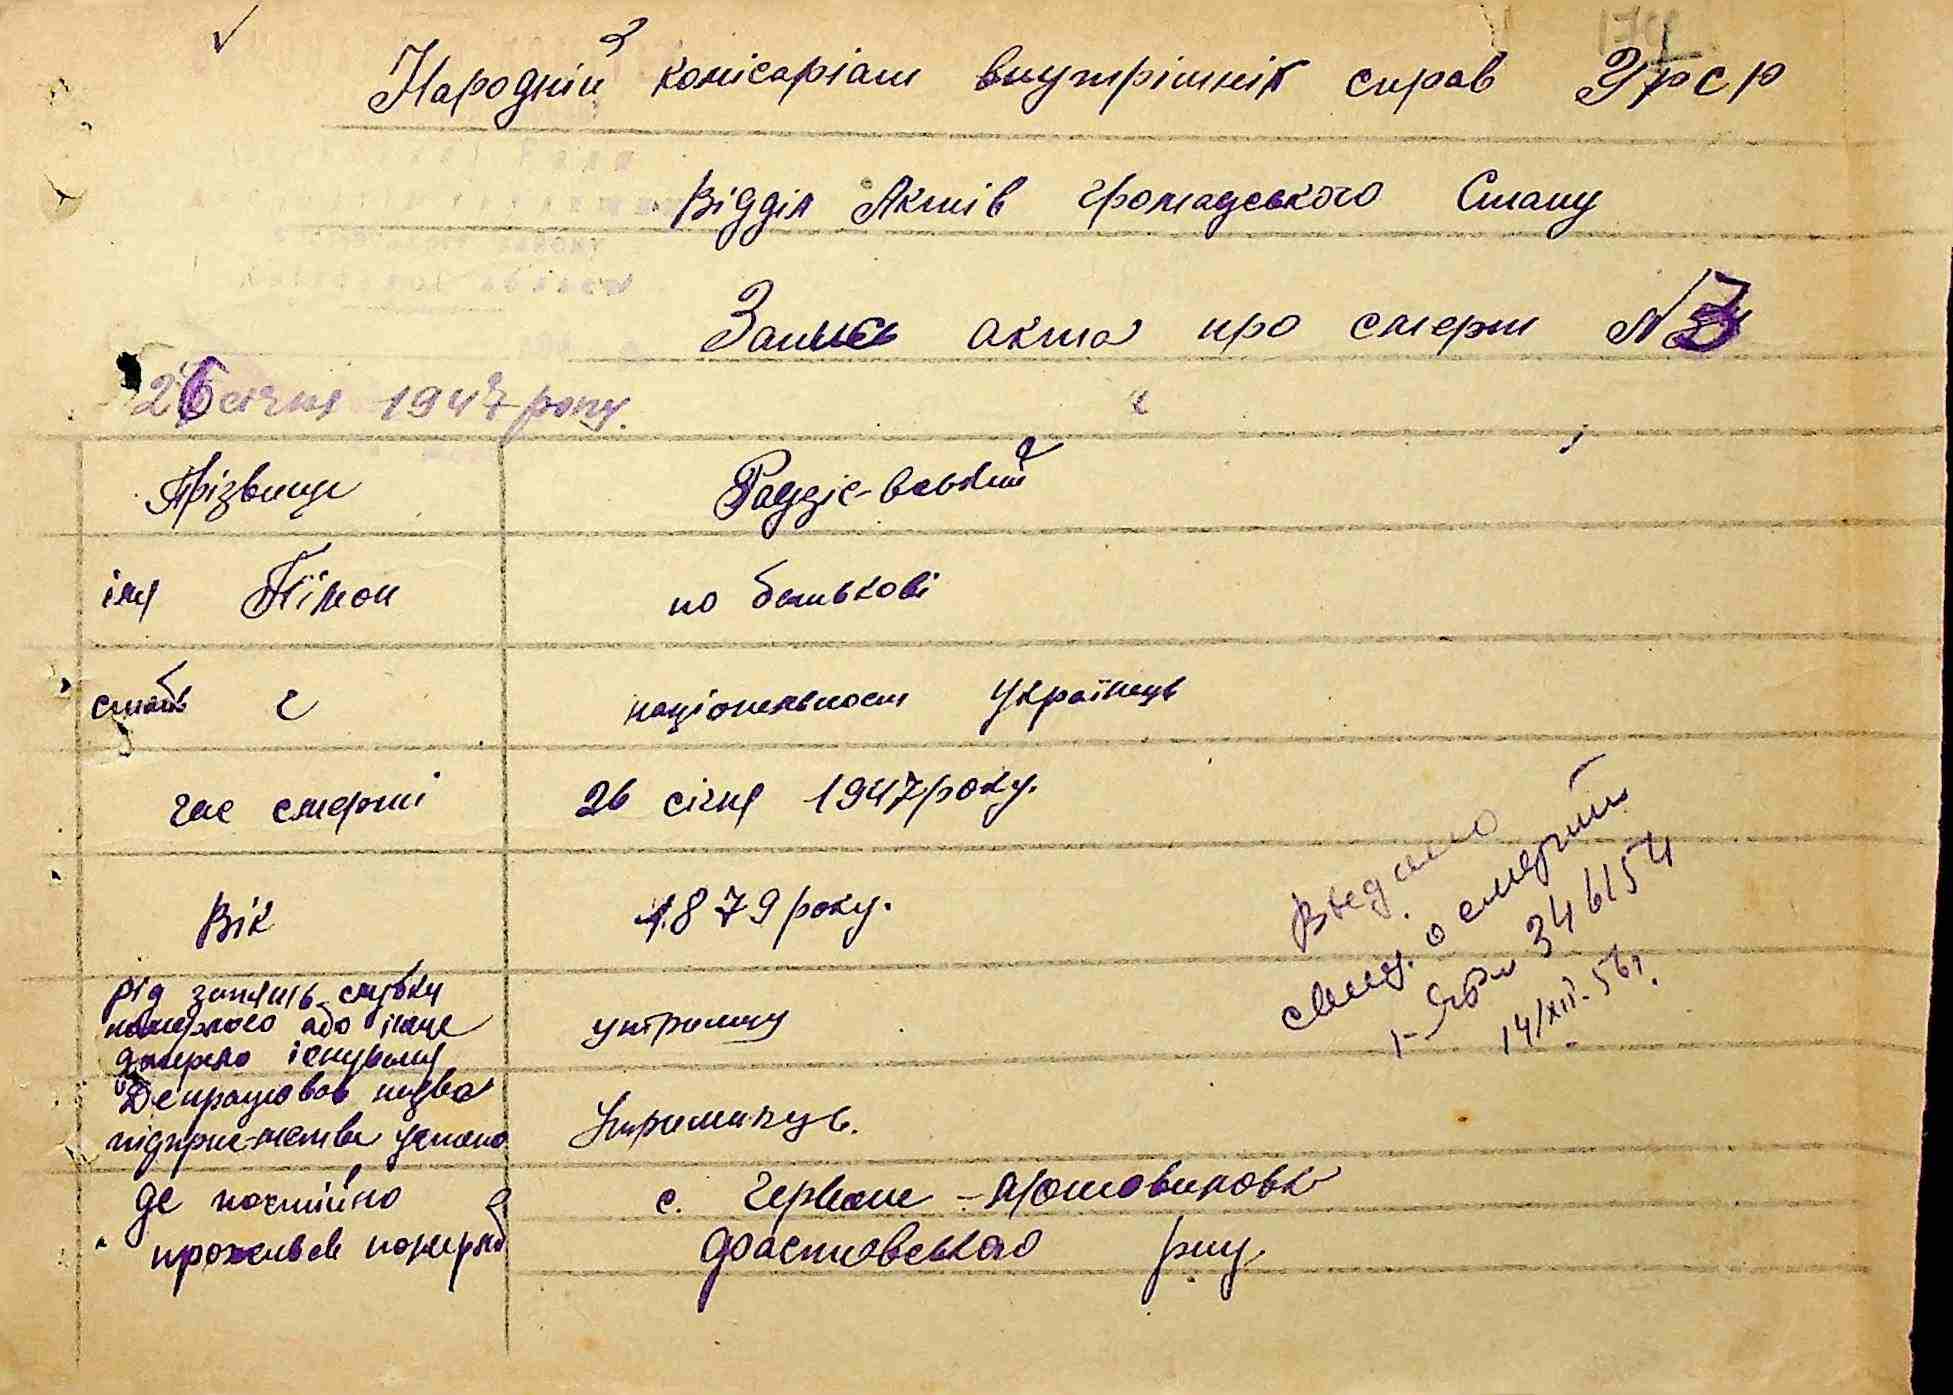 Народній комісаріат внутрішніх справ УРСР
Відділ Актів громадського Стану
Запись акта про смерть № 3
26 січня 1947 року.
Прізвище Радзіє-вський
імя Тімон по батькові
стать ч національность Українець
час смерті 26 січня 1947 року.
Вік 1879 року.
рід занять службы
померлого або інше утриманц
джерело існування
Де працював назва
підприємства установа Утриманець.
де постійно с. Червоне-Мотовиловка
проживав померлий Фастовського р-ну
Выдано
свид. о смерти
346154
14/XII-56г.